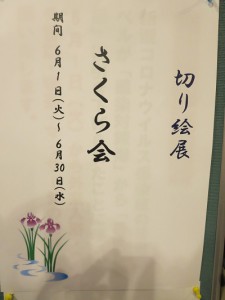 切り絵展
さくら会
期間 6月1日(火)～6月30日(水)